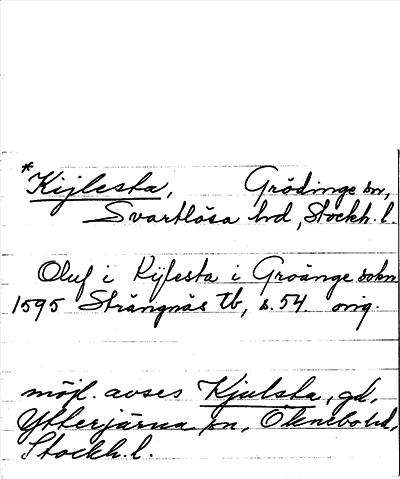 *Kijlesta, Grödinge sn,
Svartlösa hd, Stockh. l.
Oluf i Kijlesta i Groänge sokn
1595 Strängnäs tb, s. 54. orig.
möjl. avses Kjulsta, gd,
Ytterjärna sn, Öknebo hd,
Stockh. l.